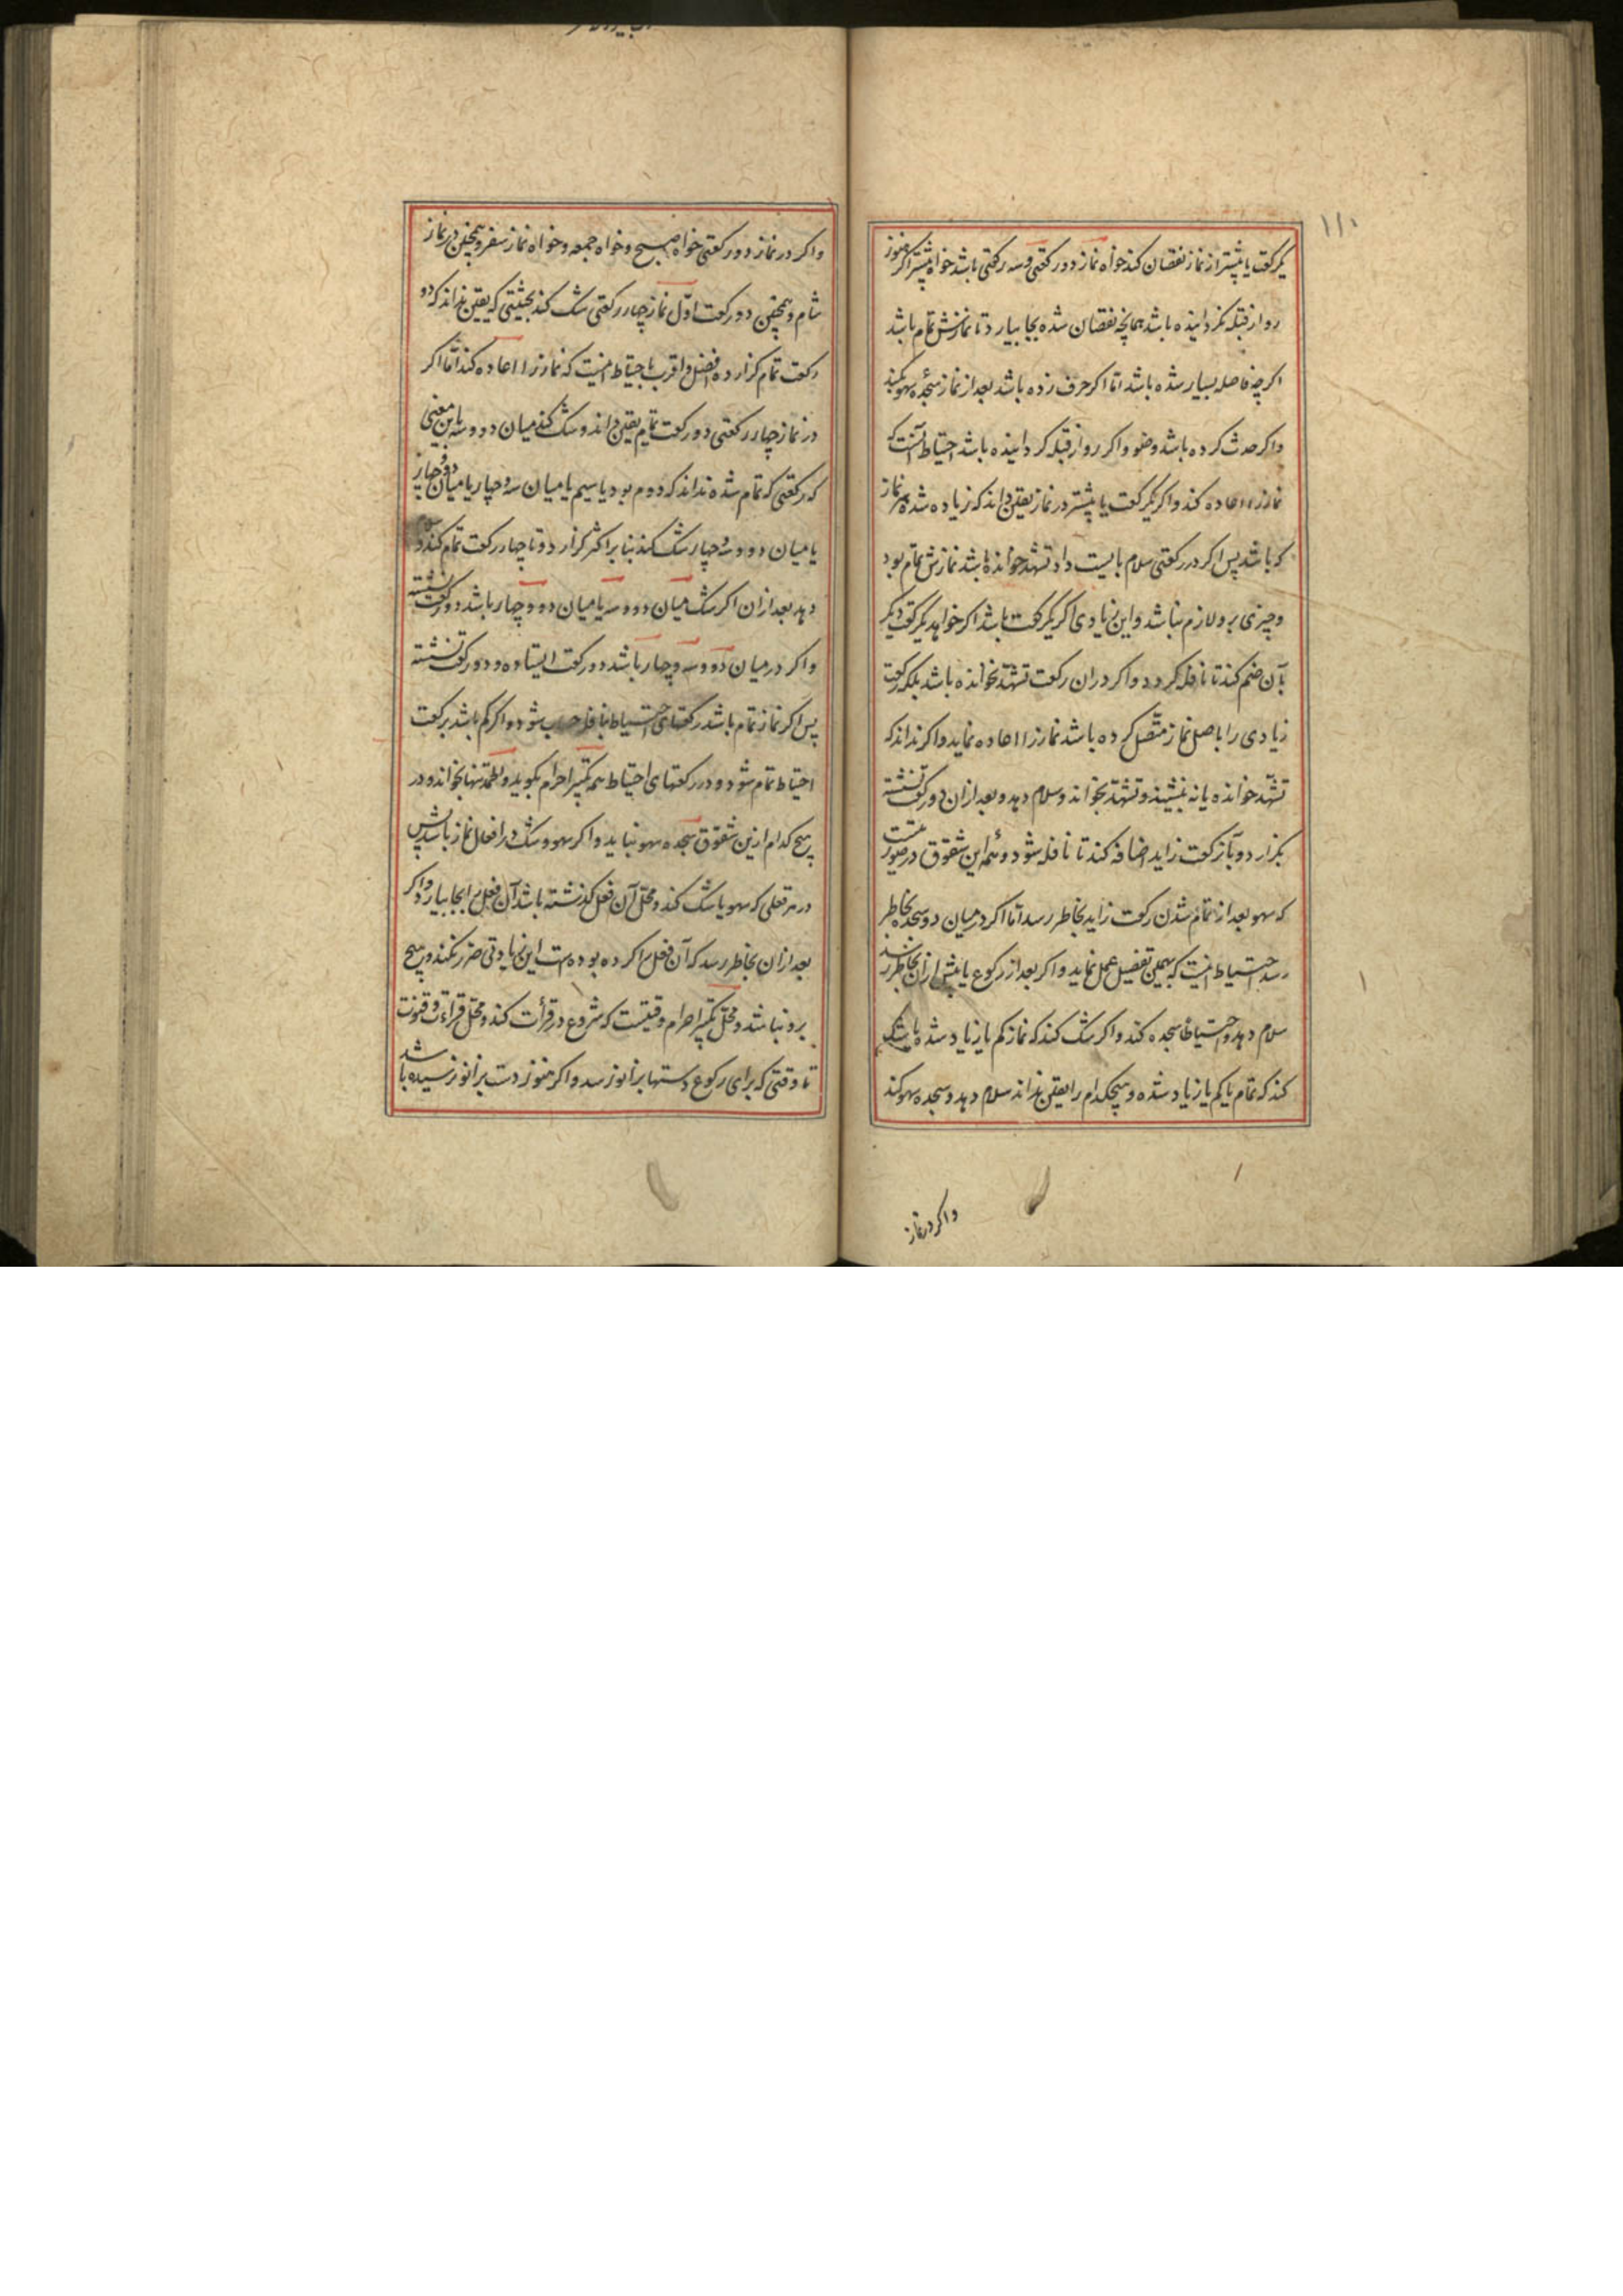 ۱۱۰
یکرکعت یا پیشتر از نماز نقصان کند خواه نماز دو رکعتی و سه رکعتی باشد خواه پیشتر اکر هنوز
رو از قبله نکردانیده باشد همانچه نقصان شده بجا بیارد تا نمازش تمام باشد
اکرچه فاصله بسیار شده باشد اما اکر حرف زده باشد بعد از نماز سجده سهو بکند
و اکر حدث کرده باشد وضو و اکر رو از قبله کردانیده باشد احتیاط آنست که
نماز را اعاده کند و اکر یکرکعت یا پیشتر در نماز یقین داند که زیاده شده هر نماز
که باشد پس اکر در رکعتی سلام بایست داد تشهد خوانده باشد نمازش تمام بود
و چیزی برو لازم نباشد و این زیادی اکر یکرکعت باشد اکر خواهد یکرکعت دیکر
بآن ضم کند تا نافله کردد و اکر در ان رکعت تشهد نخوانده باشد بلکه رکعت
زیادی را باصل نماز متصل کرده باشد نماز را اعاده نماید و اکر نداند که
تشهد خوانده یا نه بنشیند و تشهد بخواند و سلام دهد و بعد از ان دو رکعت نشسته
بکزارد و بآن رکعت زاید اضافه کند تا نافله شود و همه این شقوق در صورتیست
که سهو بعد از تمام شدن رکعت زاید بخاطر رسد اما اکر در میان دو سجده بخاطر
رسد احتیاط اینست که بهمین تفصیل عمل نماید و اکر بعد از رکوع یا پیش از ان بخاطر رسد
سلام دهد و احتیاطا سجده کند و اکر شک کند که نماز کم یا زیاد شده یا شک
کند که تمام یا کم یا زیاد شده و هیچکدام را یقین نداند سلام دهد و سجده سهو کند
و اکر در نماز
و اکر در نماز دو رکعتی خواه صبح و خواه جمعه و خواه نماز سفر و همچنین در نماز
شام و همچنین دو رکعت اول نماز چهار رکعتی شک کند بحیثیتی که یقین نداند که دو
رکعت تمام کزارده افضل و اقرب باحتیاط اینست که نماز را اعاده کند اما اکر
در نماز چهار رکعتی دو رکعت تمام یقین داند و شک کند میان دو و سه باین معنی
که رکعتی که تمام شده نداند که دوم بود یا سیم یا میان سه و چهار یا میان دو و چهار
یا میان دو و سه و چهار شک کند بنا بر اکثر کزارد و تا چهار رکعت تمام کند و سلام
دهد بعد از ان اکر شک میان دو و سه یا میان دو و چهار باشد دو رکعت نشسته
و اکر در میان دو و سه و چهار باشد دو رکعت ایستاده و دو رکعت نشسته
پس اکر نماز تمام باشد رکعتهای احتیاط بنافله حساب شود و اکر کم باشد برکعت
احتیاط تمام شود و در رکعتهای احتیاط همه تکبیر احرام بکوید و الحمد تنها بخواند و در
هیچ کدام ازین شقوق سجده سهو نباید و اکر سهو و شک در افعال نماز باشد پس
در هر فعلی که سهو یا شک کند و محل آن فعل کذشته باشد آن فعل را بجا بیارد و اکر
بعد از ان بخاطر رسد که آن فعل را کرده بوده است این زیادتی ضرر نکند و هیچ
برو نباشد و محل تکبیر احرام وقتیست که شروع در قرأت کند و محل قراءت و قنوت
تا وقتی که برای رکوع دستها بزانو رسد و اکر هنوز دست بزانو نرسیده باشد